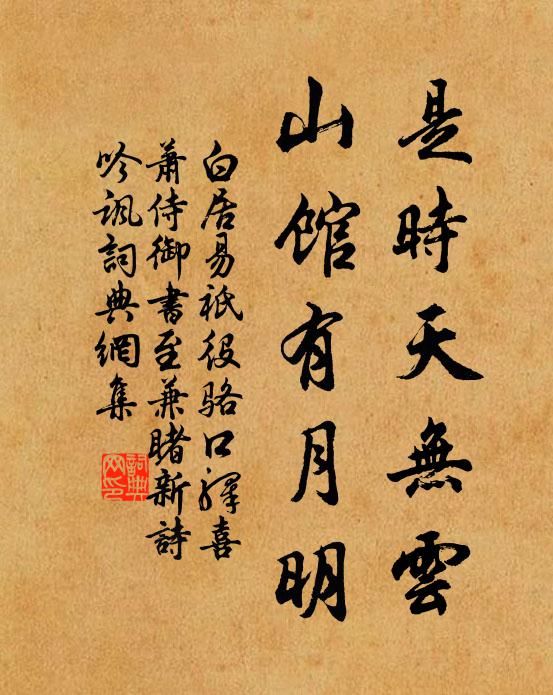 是時天無雲
山馆有月明
白居易祗役骆口驛喜
萧侍御書至兼睹新詩
吟諷詞典網集
詞典
网印